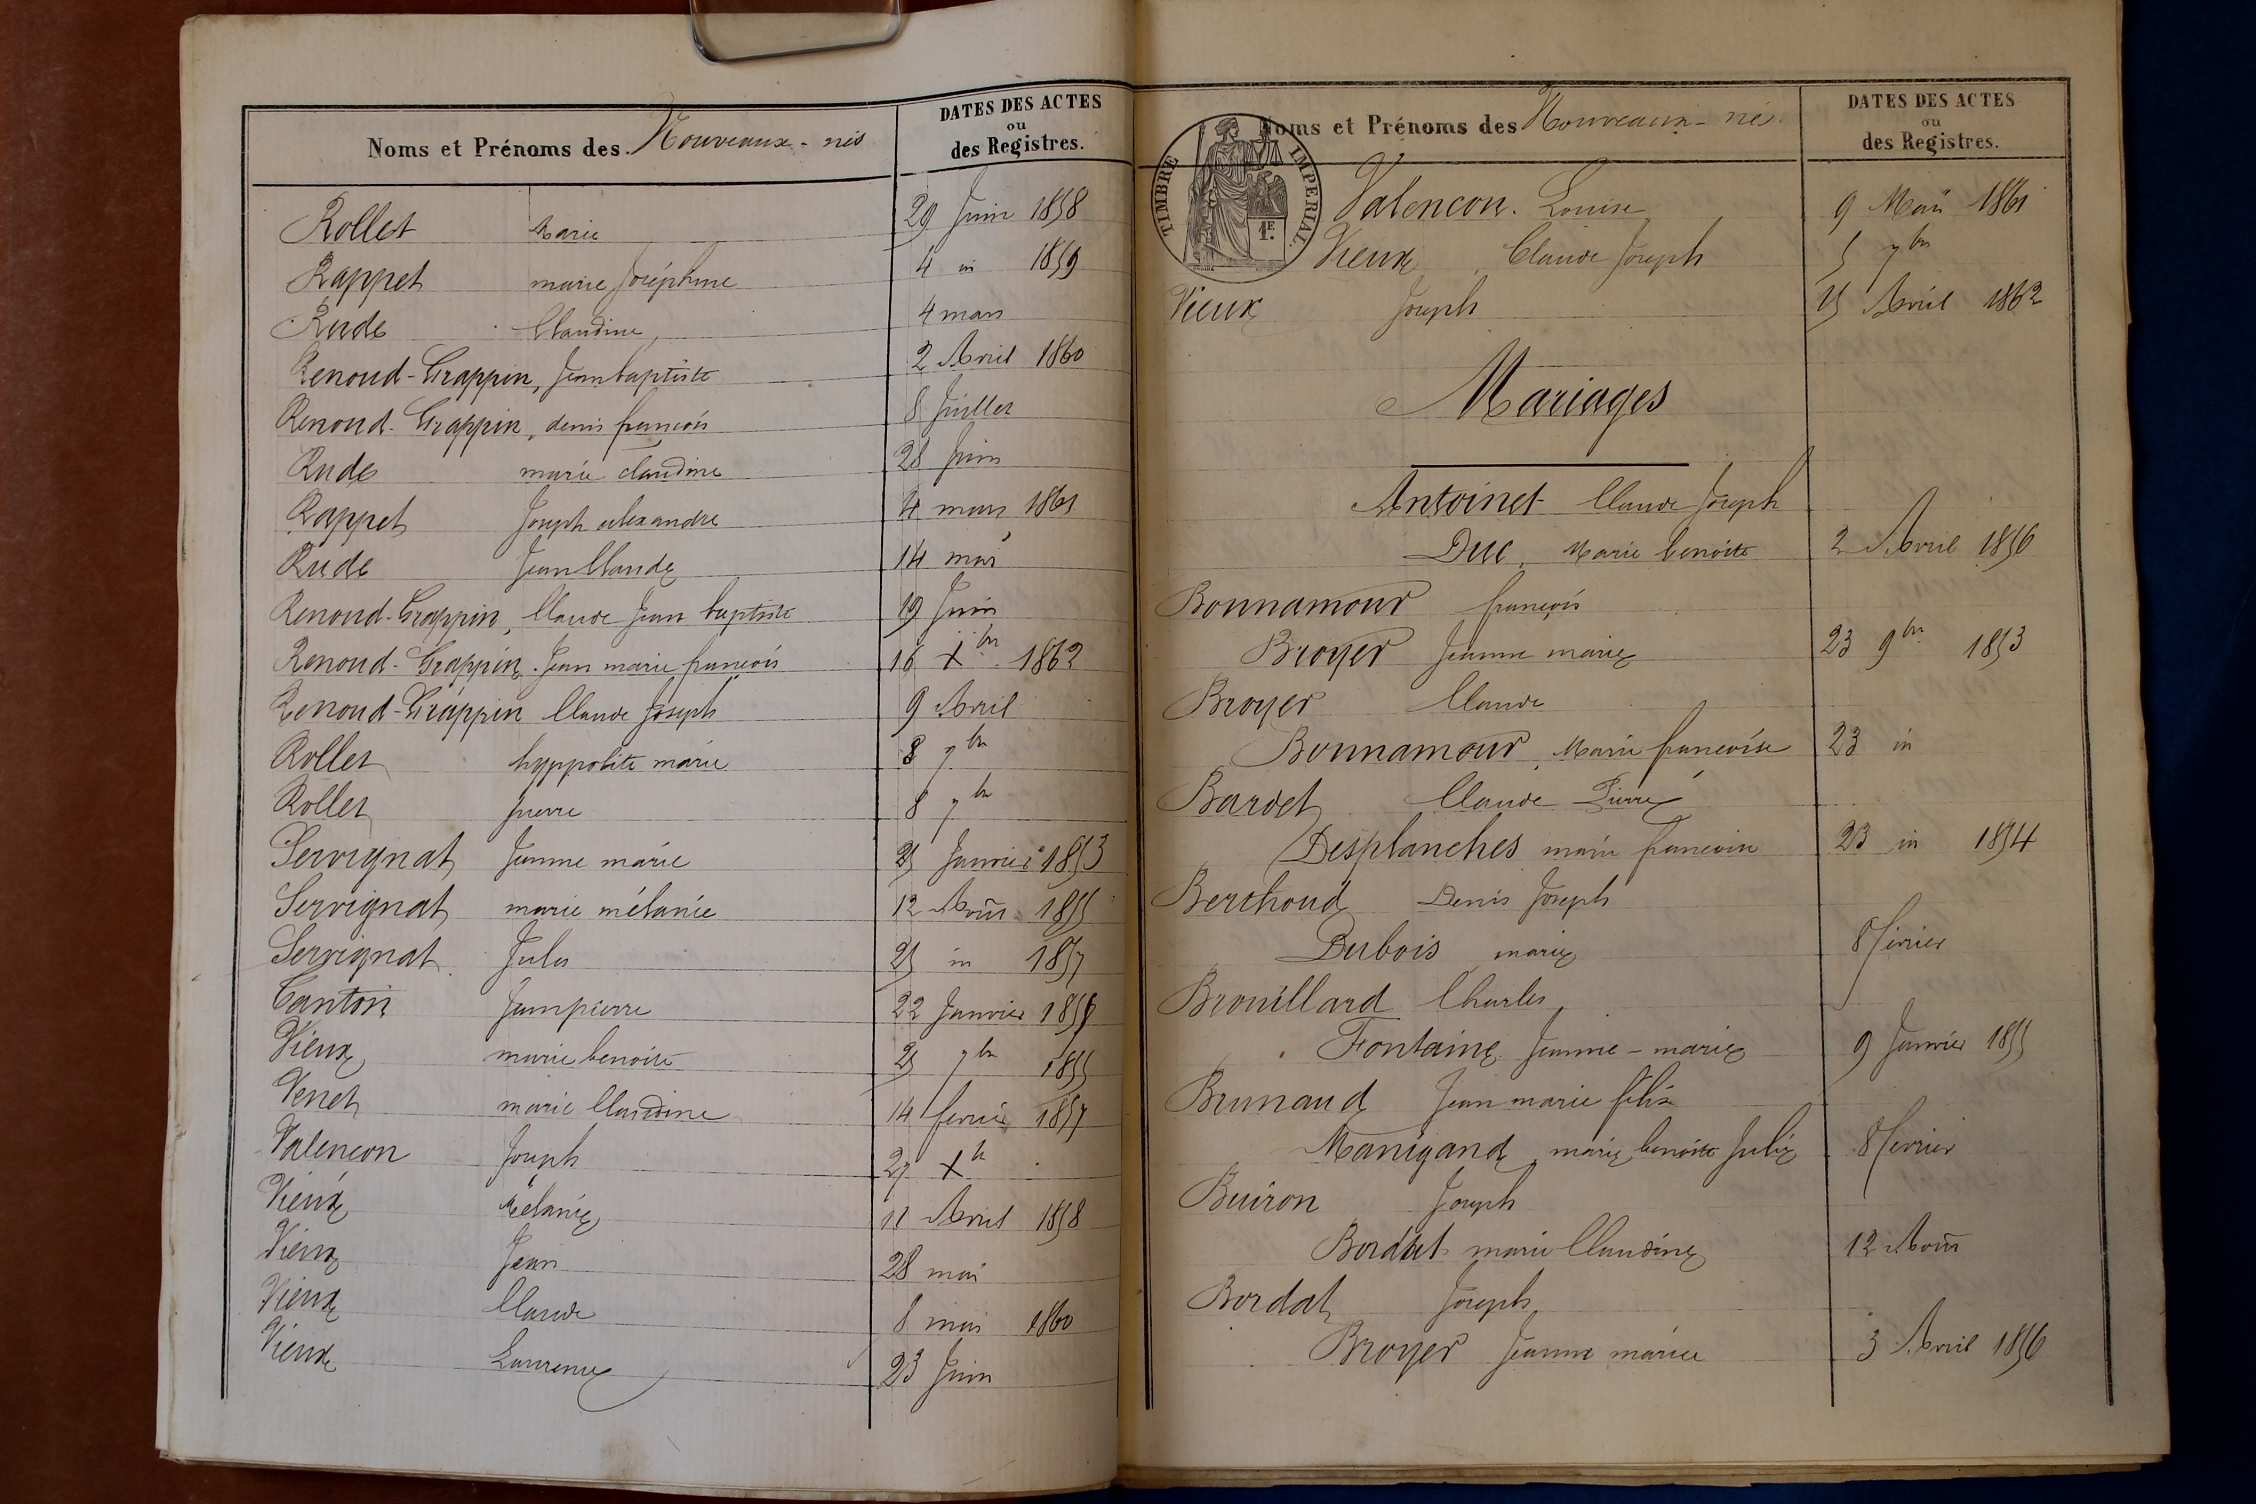 Noms et Prénoms des Nouveaux-nés
DATES DES ACTES
ou
des Registres.
Rollet Marie 29 Juin 1858
Rappet marie Joséphine 4 in 1859
Rude Claudine 4 mars
Renoud-Grappin, Jean baptiste 2 Avril 1860
Renoud-Grappin, denis françois 8 Juillet
Rude marie claudine 28 Juin
Rappet Joseph alexandre 4 mars 1861
Rude Jean Claude 14 mai
Renoud-Grappin, Claude Jean baptiste 19 Juin
Renoud-Grappin. Jean marie françois 16 Xbre 1862
Renoud-Grappin Claude Joseph 9 Avril
Rollet hyppolite marie 8 7bre
Rollet pierre 8 7bre
Servignat Jeanne marie 25 Janvier 1853
Servignat marie mélanie 12 Août 1855
Servignat Jules 25 in 1857
Canton Jean pierre 22 Janvier
Vieux marie benoite 25 7bre 1855
Venet marie Claudine 14 fevrier 1857
Valencon Joseph 27 Xbre
Vieux Mélanie 11 Avril 1858
Vieux Jean 28 mai
Vieux Claude 8 mai 1860
Vieux Laurence 23 Juin
Noms et Prénoms des Nouveaux-nés
DATES DES ACTES
ou
des Registres.
TIMBRE IMPERIAL.
1E.
Valencon. Louise 9 Mai 1861
Vieux Claude Joseph 5 7bre
Vieux Joseph 15 Avril 1862
Mariages
Antoinet Claude Joseph
Duc, Marie benoite 2 Avril 1856
Bonnamour françois
Broyer Jeanne marie 23 9bre 1853
Broyer Claude
Bonnamour, Marie francoise 23 in
Bardet Claude Pierre
Desplanches marie francoise 23 in 1854
Berthoud Denis Joseph
Dubois marie 8 fevrier
Brouillard Charles
Fontaine Jeanne-marie 9 Janvier 1855
Brunaud Jean marie félix
Manigand marie benoite Julie 8 fevrier
Buiron Joseph
Bordat marie Claudine 12 Août
Bordat Joseph
Broyer Jeanne marie 3 Avril 1856